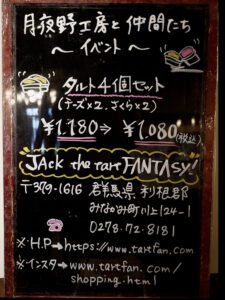 月夜野工房と仲間たち
～イベント～
タルト4個セット
(チーズ×2, さくら×2)
¥1,180⇒¥1,080(税込)
JAck the tart FANTASY!
〒379-1616 群馬県 利根郡
みなかみ町川上124-1
0278-72-8181
※H.P→https://www.tartfan.com
※インスタ→www.tartfan.com/
shopping.html